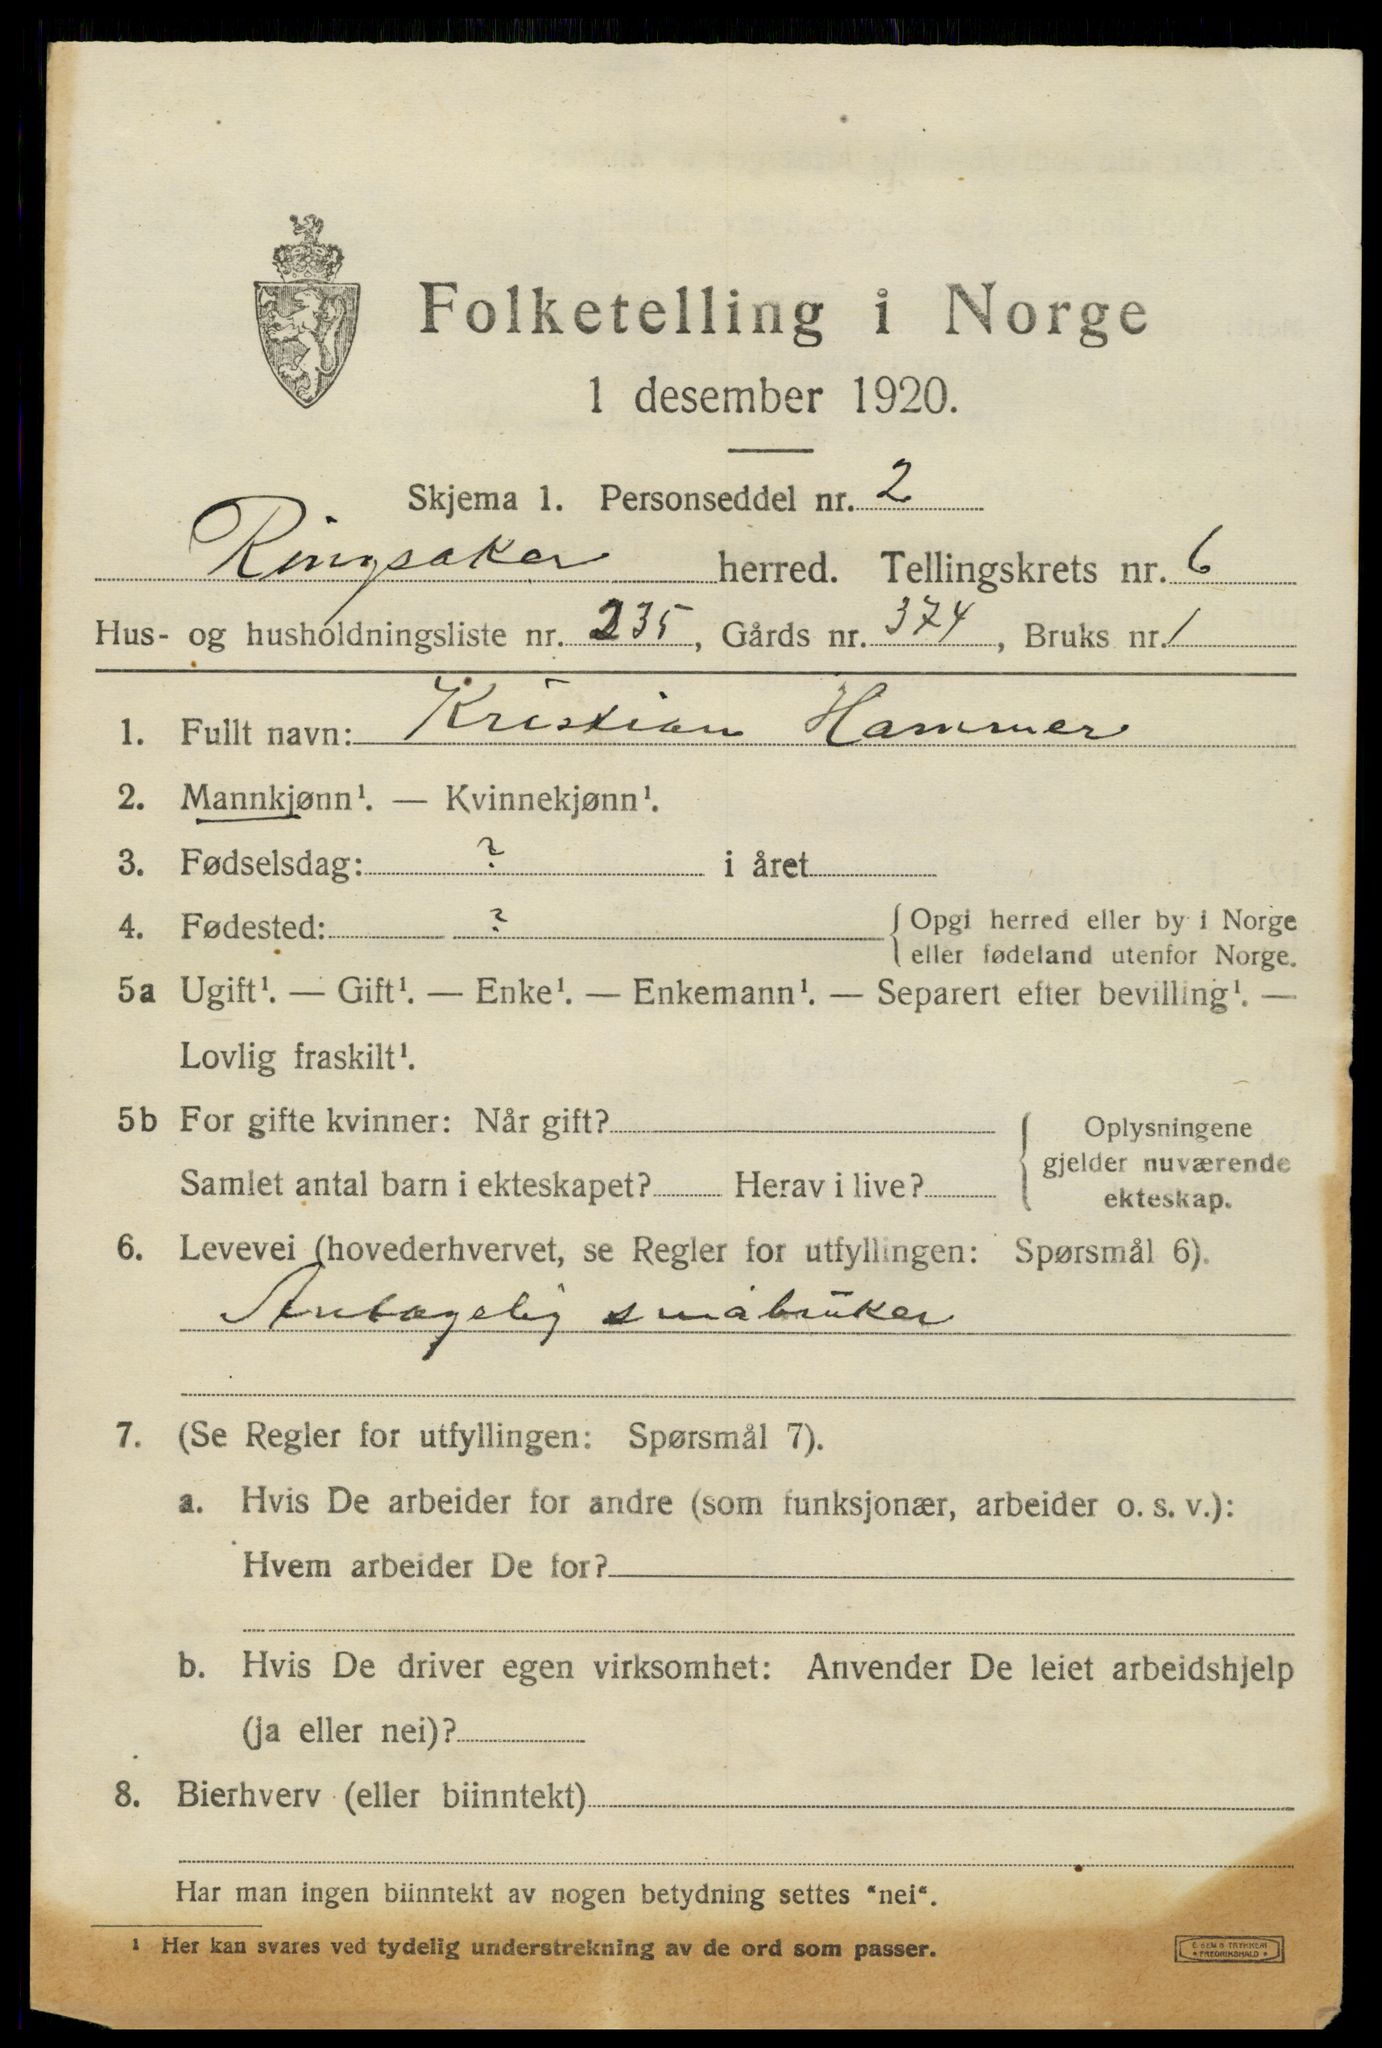 Folketelling i Norge
1 desember 1920.
Skjema 1. Personseddel nr. 2
Ringsaker herred. Tellingskrets nr. 6
Hus- og husholdningsliste nr. 235, Gårds nr. 374, Bruks nr. 1
1. Fullt navn: Kristian Hammer
2. Mannkjønn¹. — Kvinnekjønn¹.
3. Fødselsdag: ? i året
4. Fødested: ? { Opgi herred eller by i Norge
eller fødeland utenfor Norge.
5a Ugift¹. — Gift¹. — Enke¹. — Enkemann¹. — Separert efter bevilling¹. —
Lovlig fraskilt¹.
5b For gifte kvinner: Når gift?
Samlet antal barn i ekteskapet? Herav i live?
Oplysningene
gjelder nuværende
ekteskap.
6. Levevei (hovederhvervet, se Regler for utfyllingen: Spørsmål 6).
Antagelig småbrüker
7. (Se Regler for utfyllingen: Spørsmål 7).
a. Hvis De arbeider for andre (som funksjonær, arbeider o. s. v.):
Hvem arbeider De for?
b. Hvis De driver egen virksomhet: Anvender De leiet arbeidshjelp
(ja eller nei)?
8. Bierhverv (eller biinntekt)
Har man ingen biinntekt av nogen betydning settes “nei“.
¹ Her kan svares ved tydelig understrekning av de ord som passer.
TRYKKERI
FREDRIKSHALD